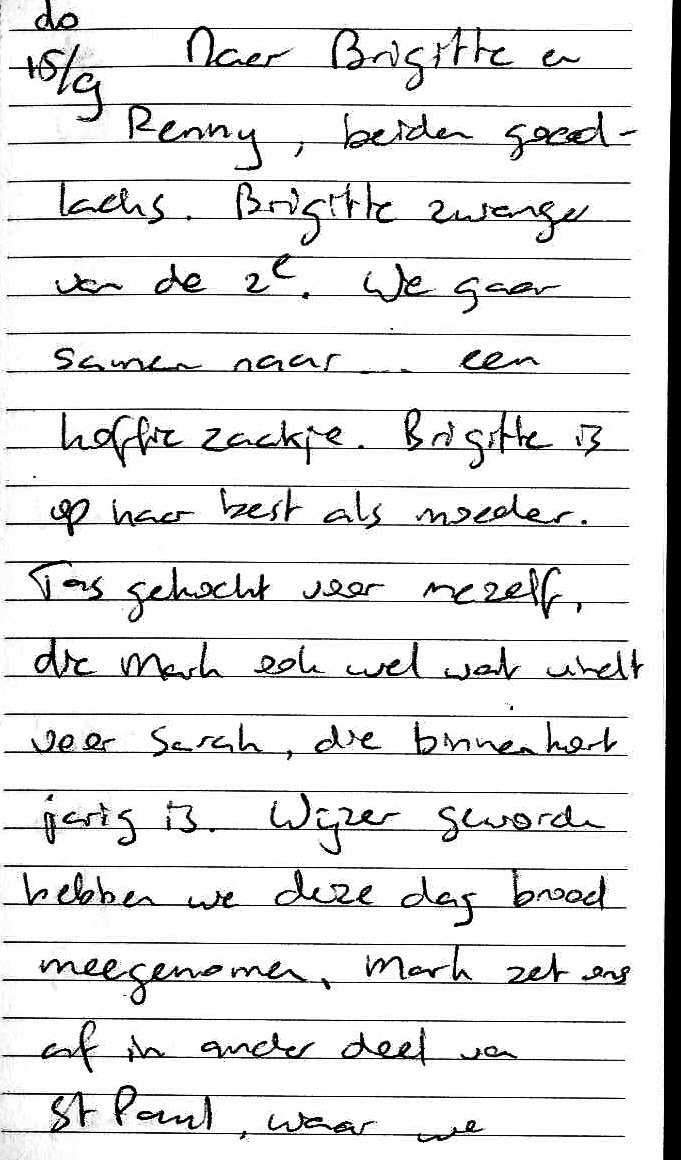 do
15/9 Naar Brigitte en
Renny, beiden goed-
lachs. Brigitte zwanger
van de 2e. We gaan
samen naar ... een
koffie zaakje. Brigitte is
op haar best als moeder.
Tas gekocht voor mezelf,
die Mark ook wel wat vindt
voor Sarah, die binnenkort
jarig is. Wijzer geworden
hebben we deze dag brood
meegenomen, Mark zet ons
af in ander deel van
St Paul, waar we